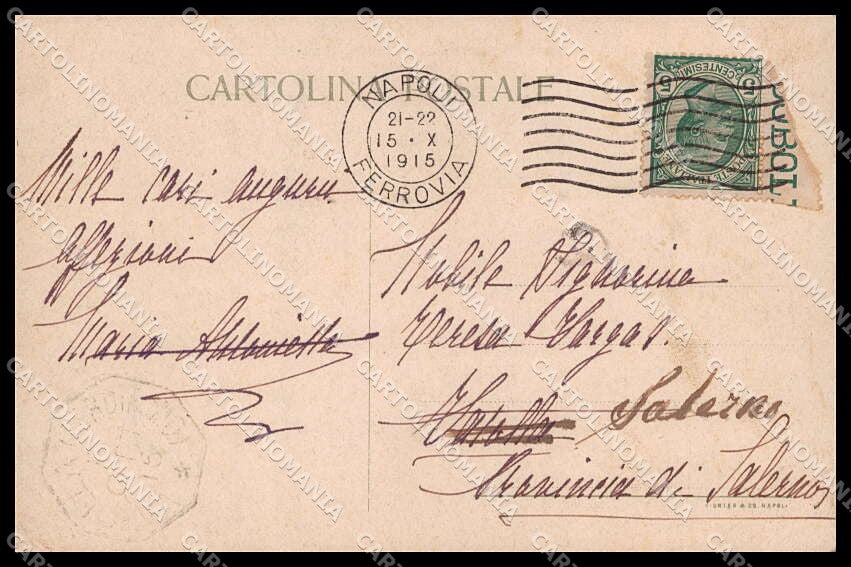 CARTOLINA POSTALE
NAPOLI
21-22
15 · X
1915
FERROVIA
5 CENTESIMI 5
Mille cari auguri
Affezioni
Maria Antonietta
Nobile Signorina
Teresa Vargas.
Vatolla Salerno
Provincia di Salerno
CARTOLINOMANIA